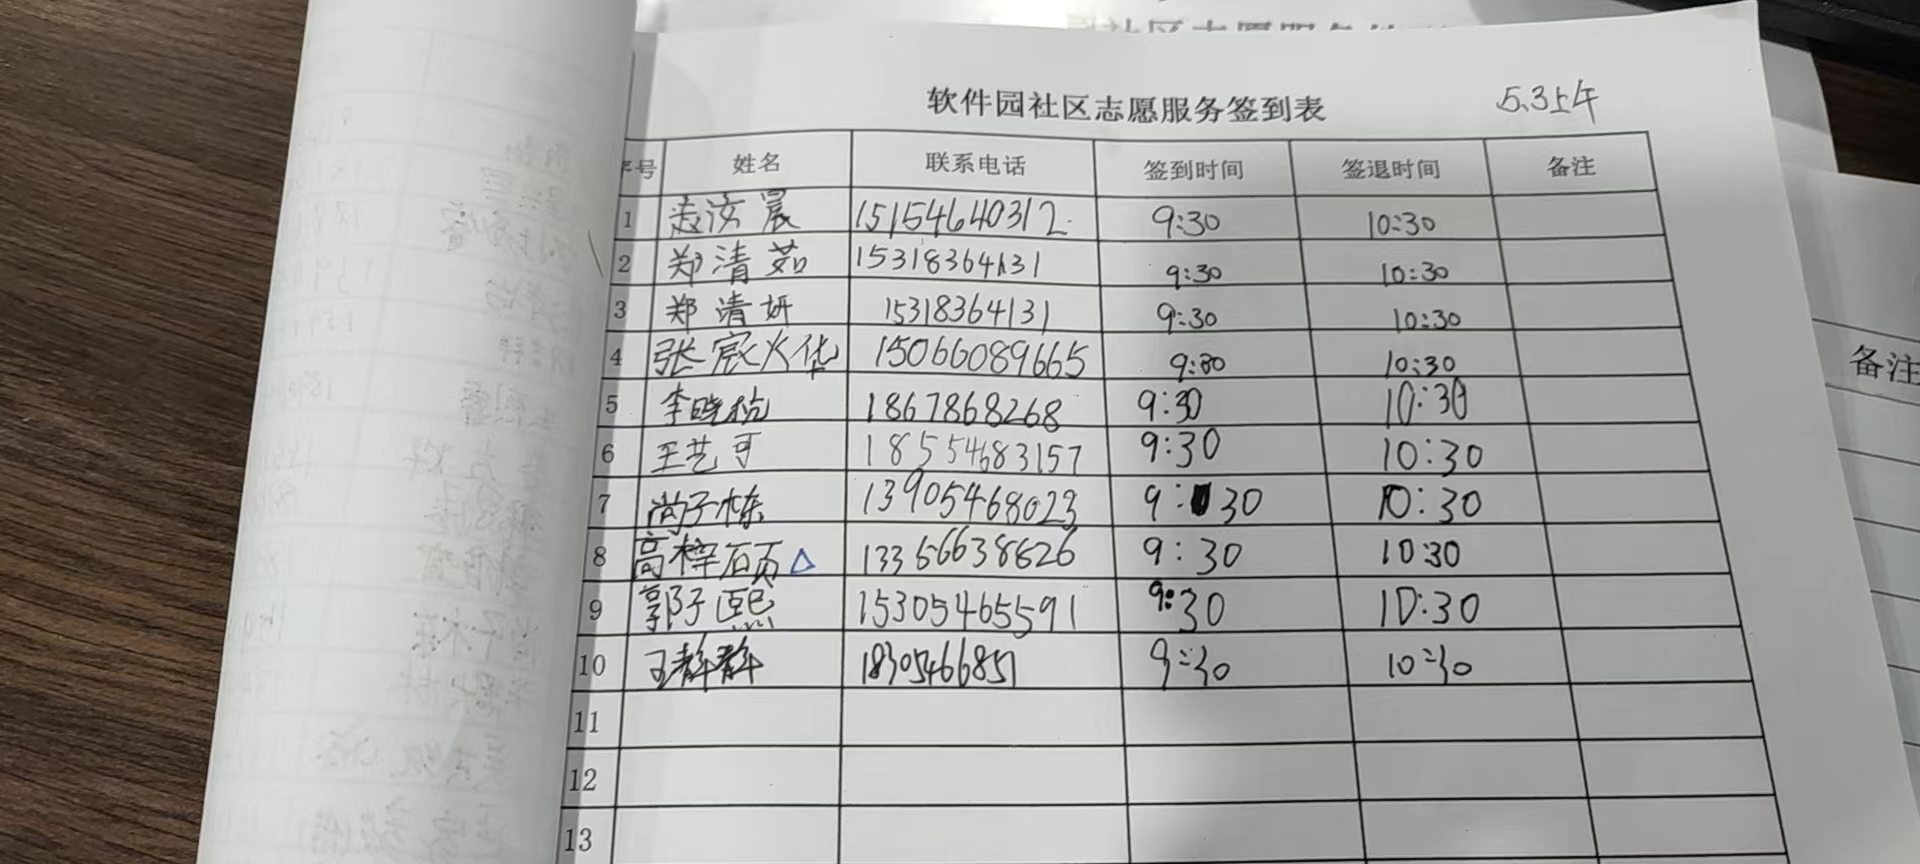 软件园社区志愿服务签到表 5.3上午
序号 姓名 联系电话 签到时间 签退时间 备注
1 15154640312 9:30 10:30
2 郑清茹 15318364131 9:30 10:30
3 郑清妍 15318364131 9:30 10:30
4 张宸烨 15066089665 9:30 10:30
5 李晓杭 1867868268 9:30 10:30
6 王艺可 18554683157 9:30 10:30
7 尚子栋 13905468023 9:30 10:30
8 高梓硕△ 9:30 10:30
9 郭子熙 15305465591 9:30 10:30
10 王静静 9:30 10:30
11
12
13
备注